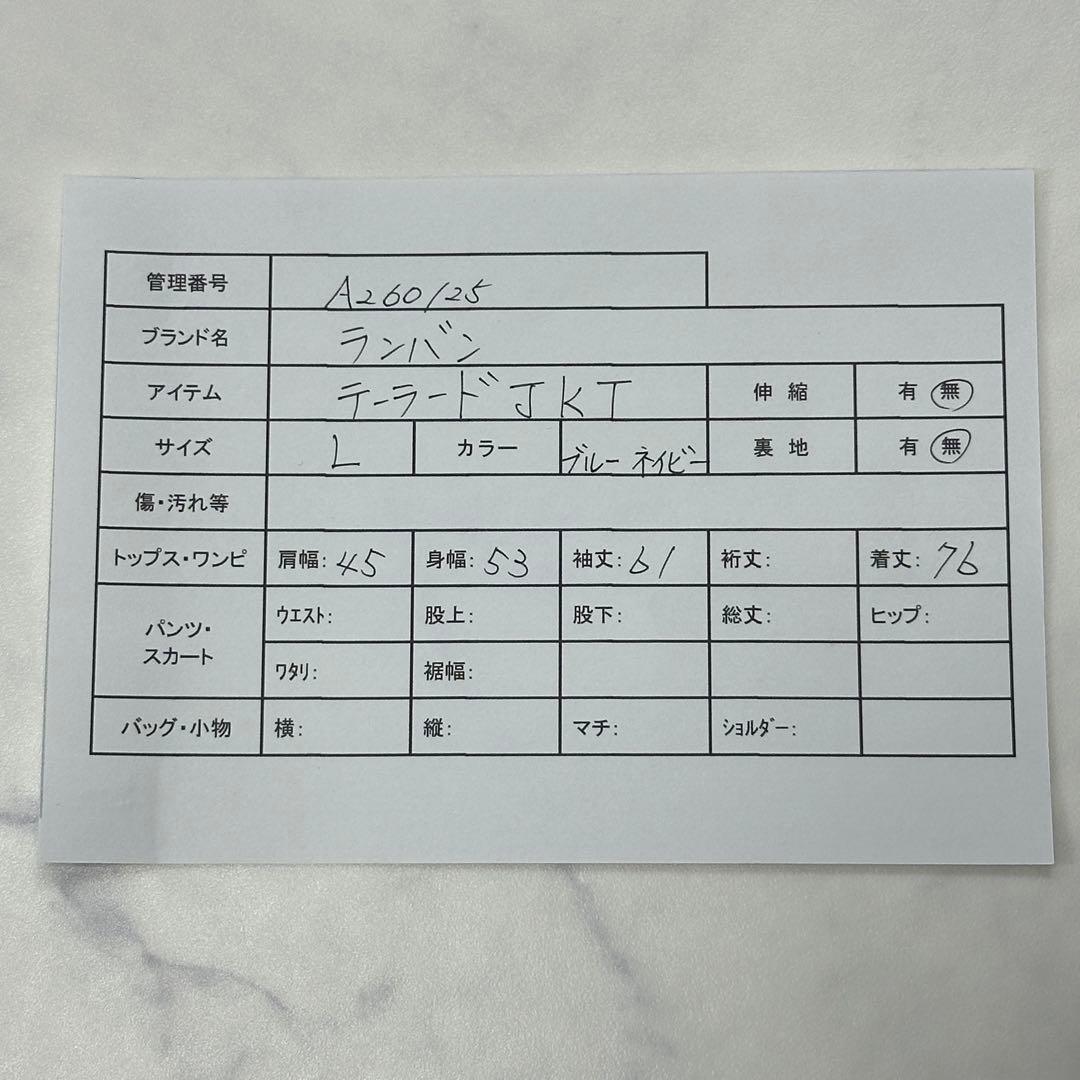 管理番号 A260125
ブランド名 ランバン
アイテム テーラードJKT 伸縮 有 無
サイズ L カラー ブルー ネイビー 裏地 有 無
傷・汚れ等
トップス・ワンピ 肩幅: 45 身幅: 53 袖丈: 61 裄丈: 着丈: 76
パンツ・スカート ウエスト: 股上: 股下: 総丈: ヒップ:
ワタリ: 裾幅:
バッグ・小物 横: 縦: マチ: ショルダー: